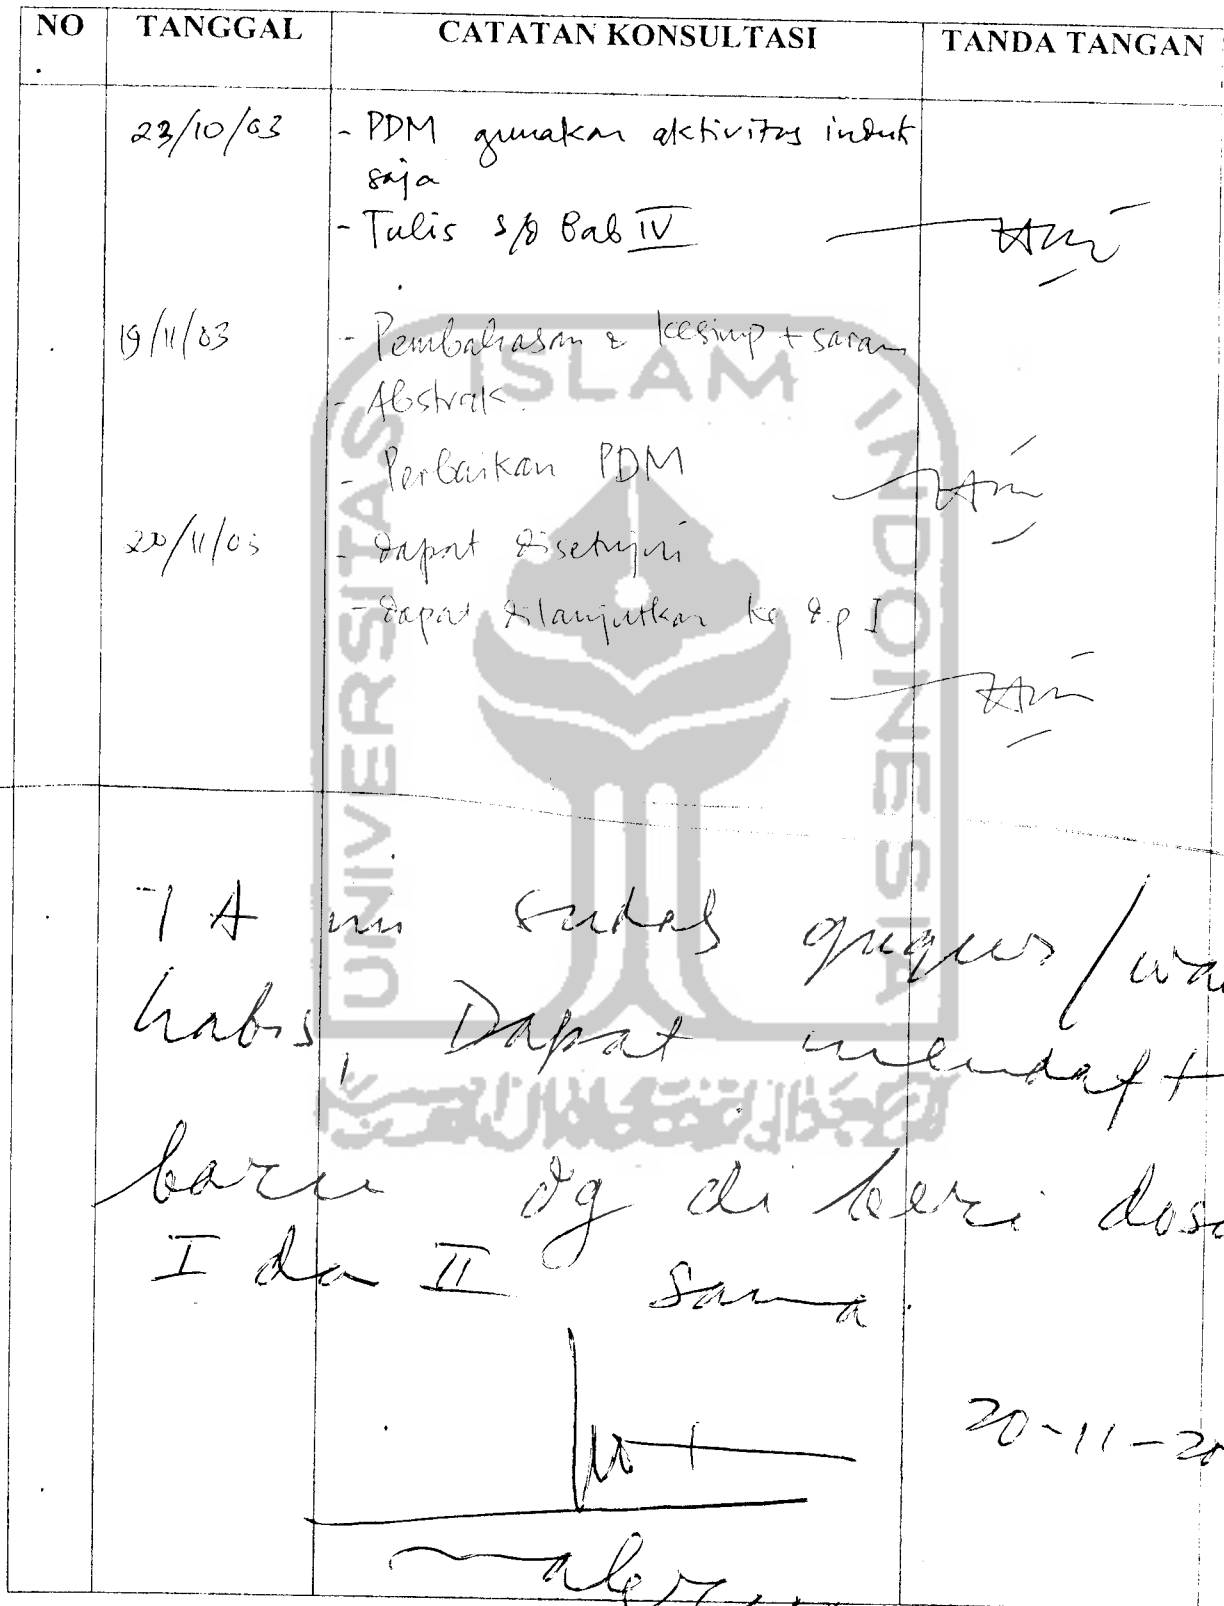 NO TANGGAL CATATAN KONSULTASI TANDA TANGAN
.
23/10/03 - PDM gunakan aktivitas induk
saja
- Tulis s/d Bab IV
19/11/03 - Pembahasan & kesimp + saran
- Abstrak.
- Perbaikan PDM
20/11/03 - dapat disetujui
- dapat dilanjutkan ke d.p I
UNIVERSITAS ISLAM INDONESIA
TA ini sudah gugur /
habis, Dapat mendaft
baru dg di beri dos
I da II sama.
20-11-20